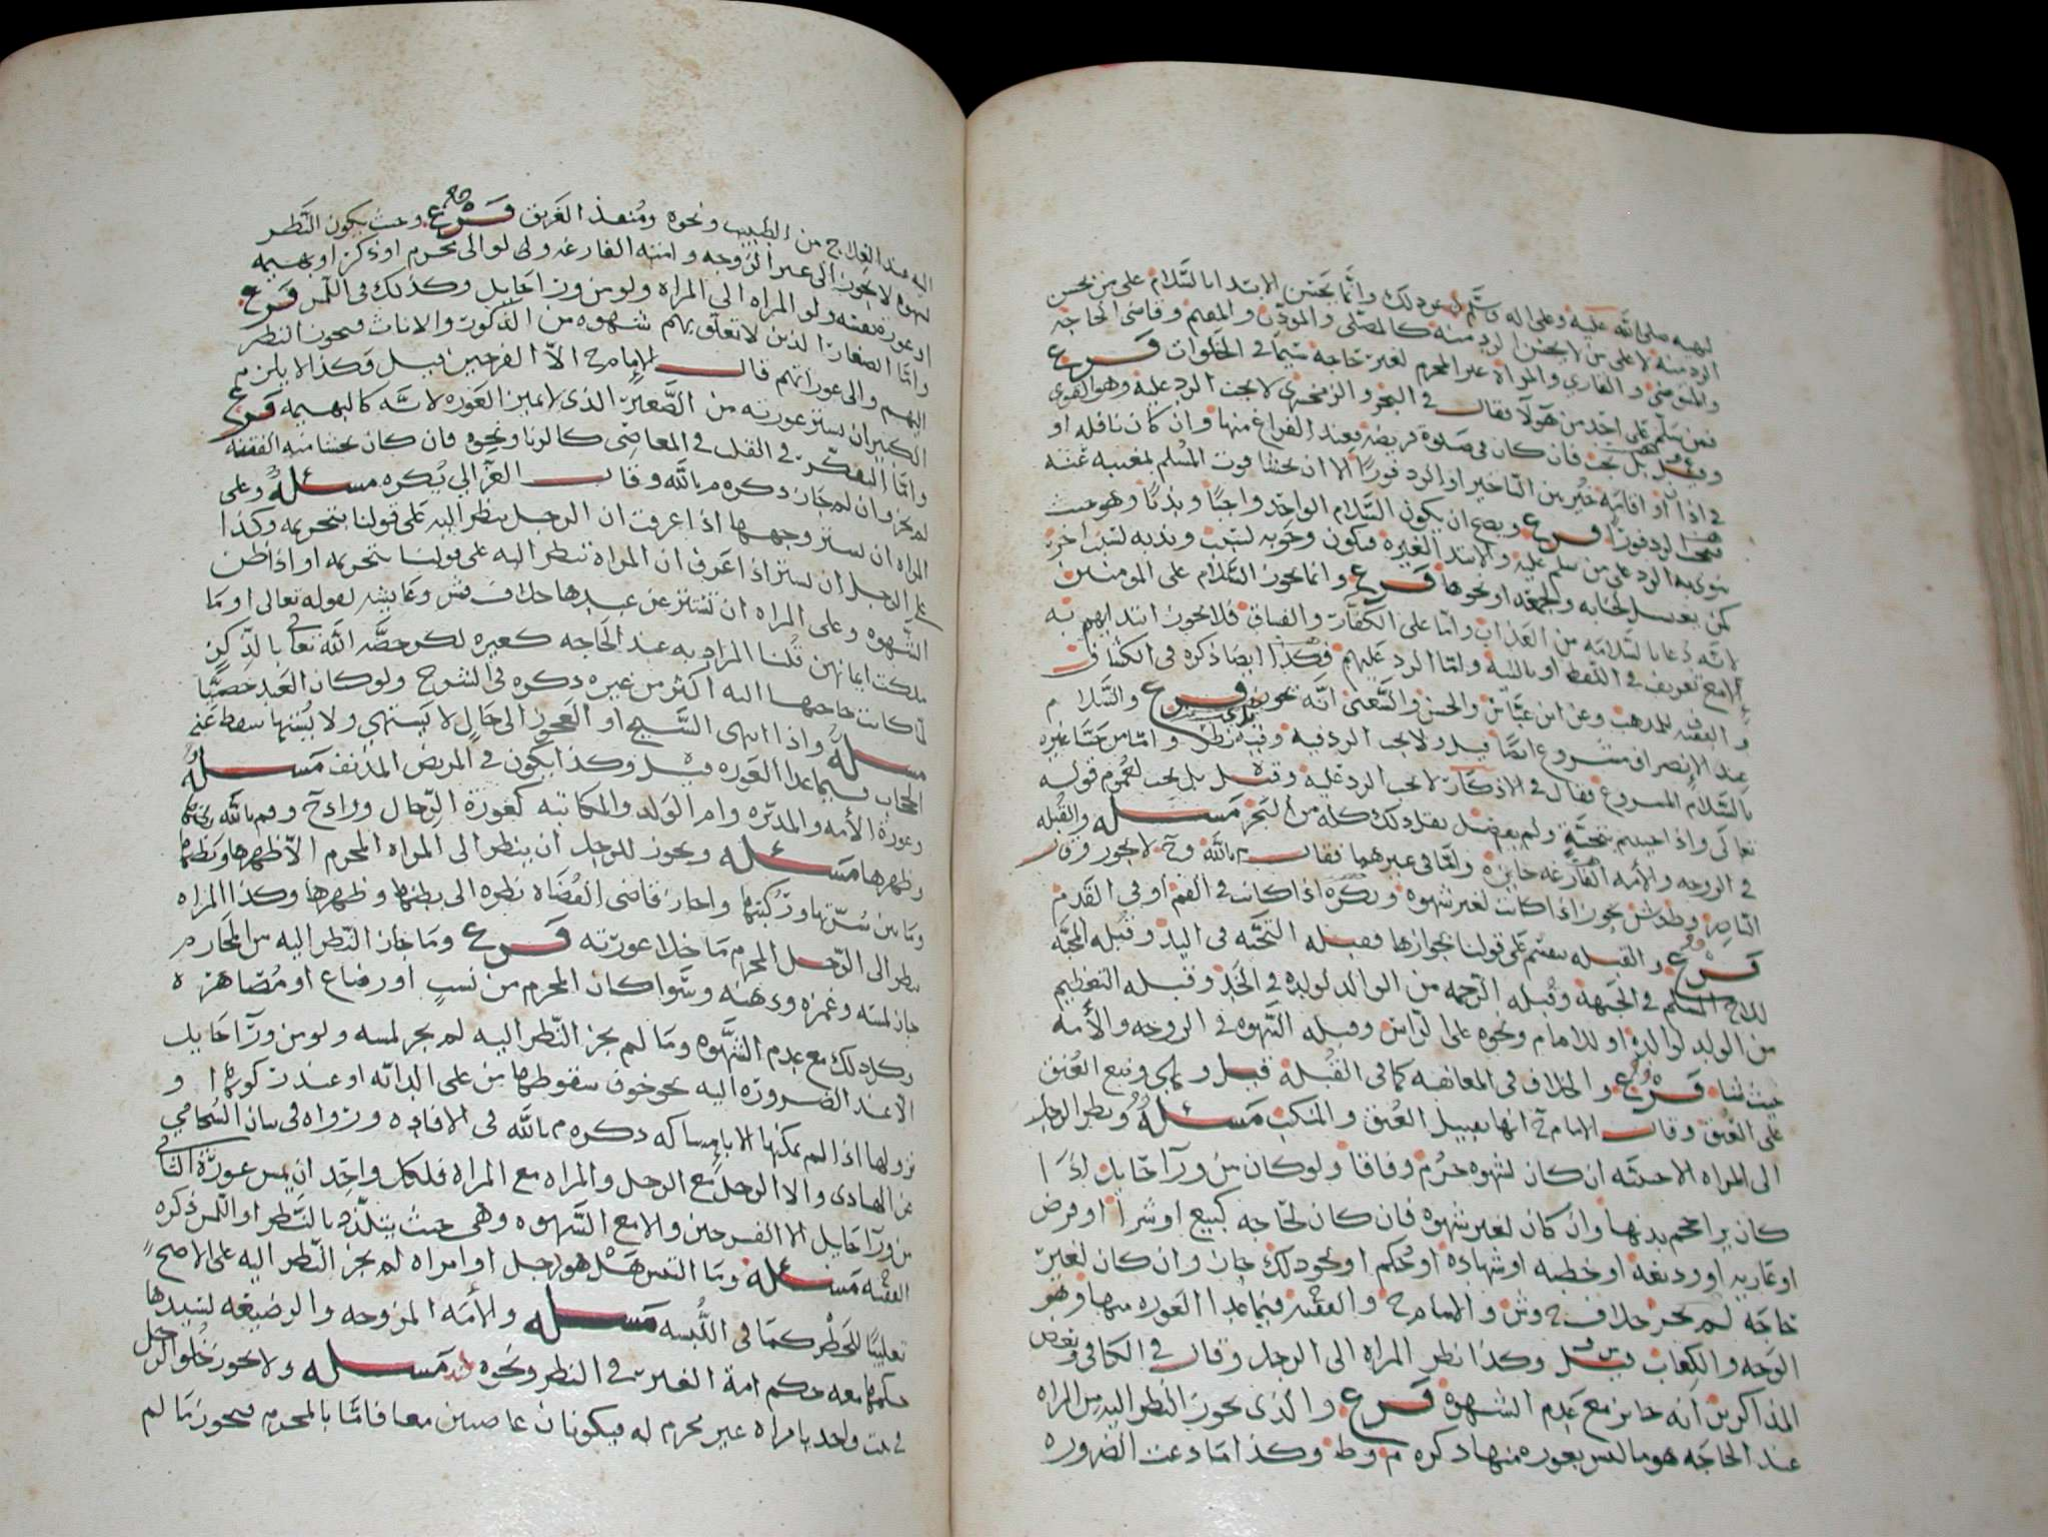 الرد منه لا على من لا يحسن الرد منه كالمصلي والمؤذن والمقيم وقاضي الحاجه
والمتوضي والقاري والمراة غير المحرم لغير حاجة سيما في الخلوات فرع
فمن سلم على احد من هولا فقال في البحر والزمخشري لا يجب الرد عليه وهو القوي
وقيل بل يجب فان كان في صلوة فريضه فعند الفراغ منها وان كان نافله او
في اذان او اقامة خير بين التاخير او الرد فورًا الا ان يخشا فوت المسلم بمغيبه عنه
فيجب الرد فورًا فرع ويصح ان يكون السلام الواحد واجبًا وندبًا وهو حيث
ينوي به الرد على من سلم عليه والابتدا لغيره فيكون وجوبه لسبب وندبه لسبب اخر
كمن يغسل لجنابه والجمعه او نحوها فرع وانما يجوز السلام على المومنين
لانه دعا بالسلامه من العذاب واما على الكفار والفساق فلا يجوز ابتدايهم به
الا مع تعريف في اللفظ او بالنيه واما الرد عليهم فكذا ايضا ذكره في الكشاف
والفقيه للمذهب وعن ابن عباس والحسن والشعبي انه يجوز فرع والسلام
عند الانصراف مشروع ايضا قيل ولا يجب الرد فيه وفيه نظر واما من حيا غيره
بالسلام المسروع فقال في الاذكار لا يجب الرد عليه وقيل بل يجب لعموم قوله
تعالى واذا حييتم بتحية ولم يفصل بعد ذلك كله من البحر مسئله والقبله
في الزوجه والأمه الفارغه جايزه واما في غيرهما فقال م بالله وح لا يجوز وقال
الناصر وط وش يجوز اذا كانت لغير شهوه ويكره اذا كانت في الفم او في القدم
فرع والقبله تنقسم على قولنا بجوازها فقبله التحيه في اليد وقبله المحبه
للاخ المسلم في الجبهه وقبله الرحمه من الوالد لولده في الخد وقبله التعظيم
من الولد لوالده او للامام ونحوه على الراس وقبله الشهوه في الزوجه والأمه
حيث شا فرع والخلاف في المعانقه كما في القبله قيل وهي وضع العنق
على العنق وقال الامام ح انها تقبيل العنق والمنكب مسئلة ونظر الرجل
الى المراه الاجنبيه ان كان لشهوه حرم وفاقا ولو كان من ورآ حايل اذا
كان يرا حجم بدنها وان كان لغير شهوه فان كان لحاجه كبيع او شرا او قرض
او عاريه او وديعه او خطبه او شهاده او حكم او نحو ذلك جاز وان كان لغير
حاجه لم يجز خلاف ح وش والامام ح والفقيه فيما عدا العوره منها وهو
الوجه والكفان قيل وكذا نظر المراه الى الرجل وقال في الكافي وبعض
المذاكرين انه جايز مع عدم الشهوة فرع والذي يجوز النظر اليه من المراه
عند الحاجه هو ما ليس بعوره منها ذكره م وط وكذا ما دعت الضروره
اليه عند العلاج من الطبيب ونحوه ومنقذ الغريق فرع وحيث يكون النظر
لشهوه لا يجوز الى غير الزوجه وامته الفارغه ولو الى محرم او ذكر او بهيمه
او عورة نفسه ولو المراه الى المراه ولو من ورآ حايل وكذلك في اللمس فرع
واما الصغار الذين لا تعلق بهم شهوه من الذكور والاناث فيجوز النظر
اليهم والى عوراتهم قال الامام ح الا الفرجين قيل وكذا لا يلزم
الكبير ان يستر عورته من الصغير الذي لا يميز العوره لانه كالبهيمه فرع
واما التفكر في القلب في المعاصي كالزنا ونحوه فان كان خشيا منه الفتنه
لم يجز وان لم جاز ذكره م بالله وقال الغزالي يكره مسئلة وعلى
المراه ان تستر وجهها اذا عرفت ان الرجل ينظر اليه على قولنا بتحريمه وكذا
على الرجل ان يستتر اذا عرف ان المراة تنظر اليه على قولنا بتحريمه او اذا ظن
الشهوه وعلى المراه ان تستتر عن عبدها خلاف ش وعايشه لقوله تعالى او ما
ملكت ايمانهن قلنا المراد به عند الحاجه كغيره لكن خصه الله تعالى بالذكر
لما كانت حاجتها اليه اكثر من غيره ذكره في الشرح ولو كان العبد خصيًا
مسئلة واذا انتهى الشيخ او العجوز الى حال لا يشتهي ولا يشتها سقط عنه
الحجاب فيما عدا العوره قيل وكذا يكون في المريض المدنف مسئلة
وعورة الأمه والمدبره وام الولد والمكاتبه كعورة الرجال وزاد ح وم بالله بطنها
وظهرها مسئلة ويجوز للرجل ان ينظر الى المراه المحرم الا ظهرها وبطنها
وما بين سرتها وركبتها واجاز قاضي القضاه نظره الى بطنها وظهرها وكذا المراه
تنظر الى الرجل المحرم ما خلا عورته فرع وما جاز النظر اليه من المحارم
جاز لمسه وغمزه ودهنه وسوا كان المحرم من نسب او رضاع او مصاهرة
وكل ذلك مع عدم الشهوه وما لم يجز النظر اليه لم يجز لمسه ولو من ورآ حايل
الا عند الضروره اليه نحو خوف سقوطها من على الدابه او عند ركوبها و
نزولها اذا لم يمكنها الا بامساكه ذكره م بالله في الافاده ورواه في بيان السحامي
عن الهادي والا الرجل مع الرجل والمراه مع المراه فلكل واحد ان يمس عورة الثاني
من ورآ حايل الا الفرجين والا مع الشهوه وهي حيث يتلذذ بالنظر او اللمس ذكره
الفقيه مسئلة وما التبس هل هو رجل او امراه لم يجز النظر اليه على الاصح
تغليبًا للحظر كما في اللبسه مسئلة والأمه المزوجه والرضيعه لسيدها
حكمها معه حكم امة الغير في النظر ونحوه مسئلة ولا يجوز خلو الرجل
في بيت واحد بامراه غير محرم له فيكونان عاصيين معا فاما بالمحرم فيجوز ما لم